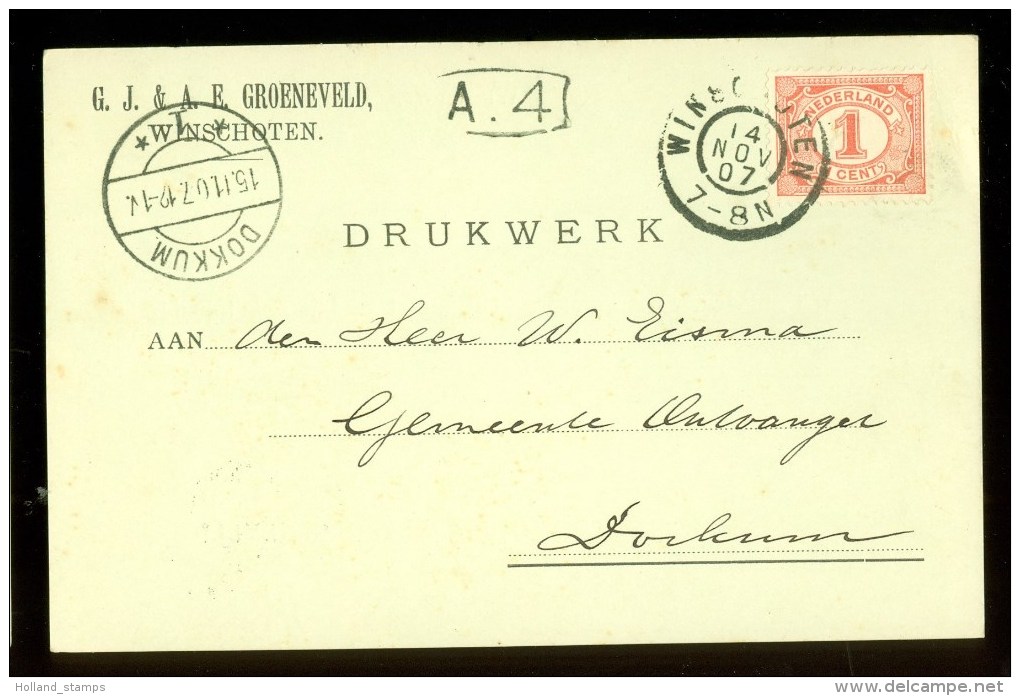 G. J. & A. E. GROENEVELD,
WINSCHOTEN.
A.4
WINSCHOTEN
14
NOV
07
7-8N
NEDERLAND
1
CENT
1
15.11.07.12-1V.
DOKKUM
DRUKWERK
AAN den Heer W. Eisma
Gemeente Ontvanger
Dockum
Holland_stamps
delcampe.net